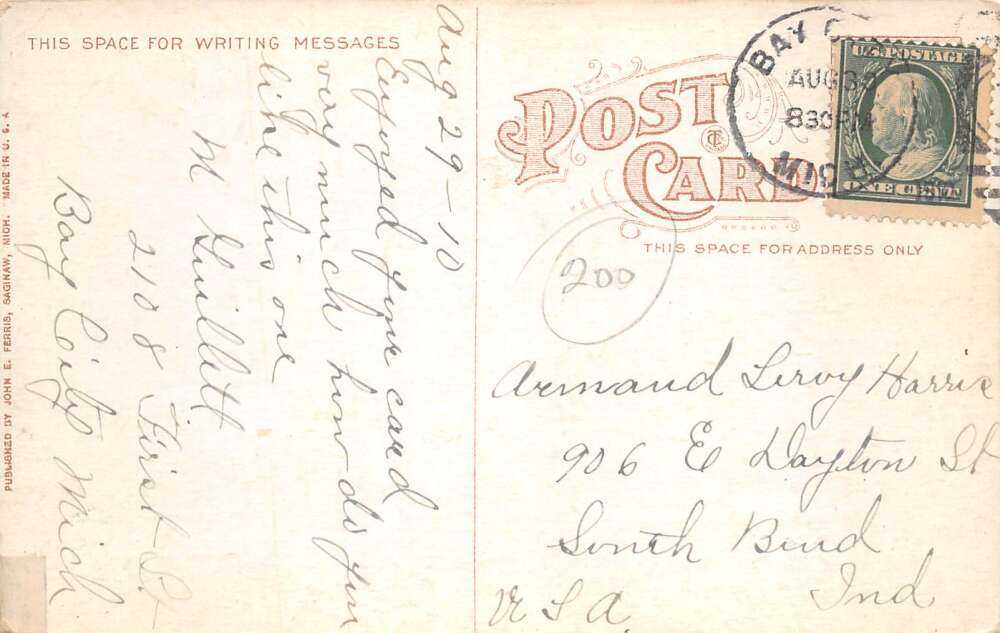 THIS SPACE FOR WRITING MESSAGES
Aug 29-10
Enjoyed your card
very much how do you
like this one
M Guillett
210 8 First St
Bay City Mich
PUBLISHED BY JOHN E. FERRIS, SAGINAW, MICH. MADE IN U.S.A
POST CARD
CT
THIS SPACE FOR ADDRESS ONLY
BAY
AUG 30
8 30 PM
MICH
U.S. POSTAGE
ONE CENT
200
Armand Leroy Harris
906 E Dayton St
South Bend
Ind
U S A